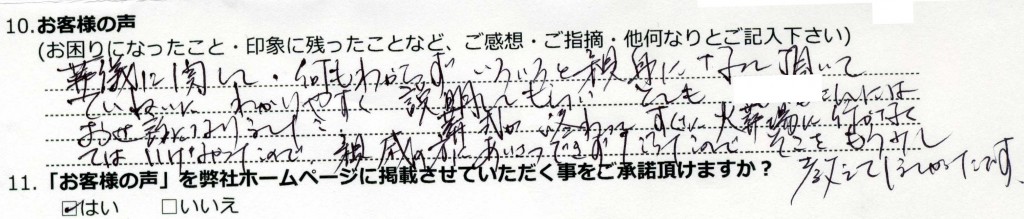 10.お客様の声
(お困りになったこと・印象に残ったことなど、ご感想・ご指摘・他何なりとご記入下さい)
葬儀に関して・何もわからず いろいろと親身に なって頂いて
ていねいに わかりやすく 説明してもらい とても さんには
お世話になりました 葬式が 終わって すぐに 火葬場に 行かなくて
ては いけなかったので、親戚の方にあいさつできずだったので、そこをもう少し
教えてほしかったです。
11.「お客様の声」を弊社ホームページに掲載させていただく事をご承諾頂けますか？
☑はい □いいえ